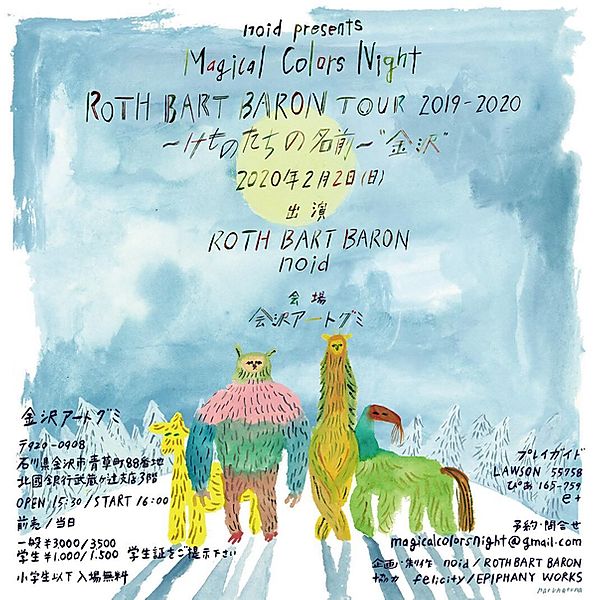 noid presents
Magical Colors Night
ROTH BART BARON TOUR 2019-2020
～けものたちの名前～"金沢"
2020年2月2日(日)
出演
ROTH BART BARON
noid
会場
金沢アートグミ
金沢アートグミ
〒920-0908
石川県金沢市青草町88番地
北國銀行武蔵ヶ辻支店3階
OPEN 15:30/START 16:00
前売/当日
一般¥3000/3500
学生¥1.000/1.500 学生証をご提示下さい
小学生以下入場無料
プレイガイド
LAWSON 55758
ぴあ 165-759
e+
予約・問合せ
magicalcolorsnight@gmail.com
企画・制作 noid/ROTH BART BARON
協力 felicity/EPIPHANY WORKS